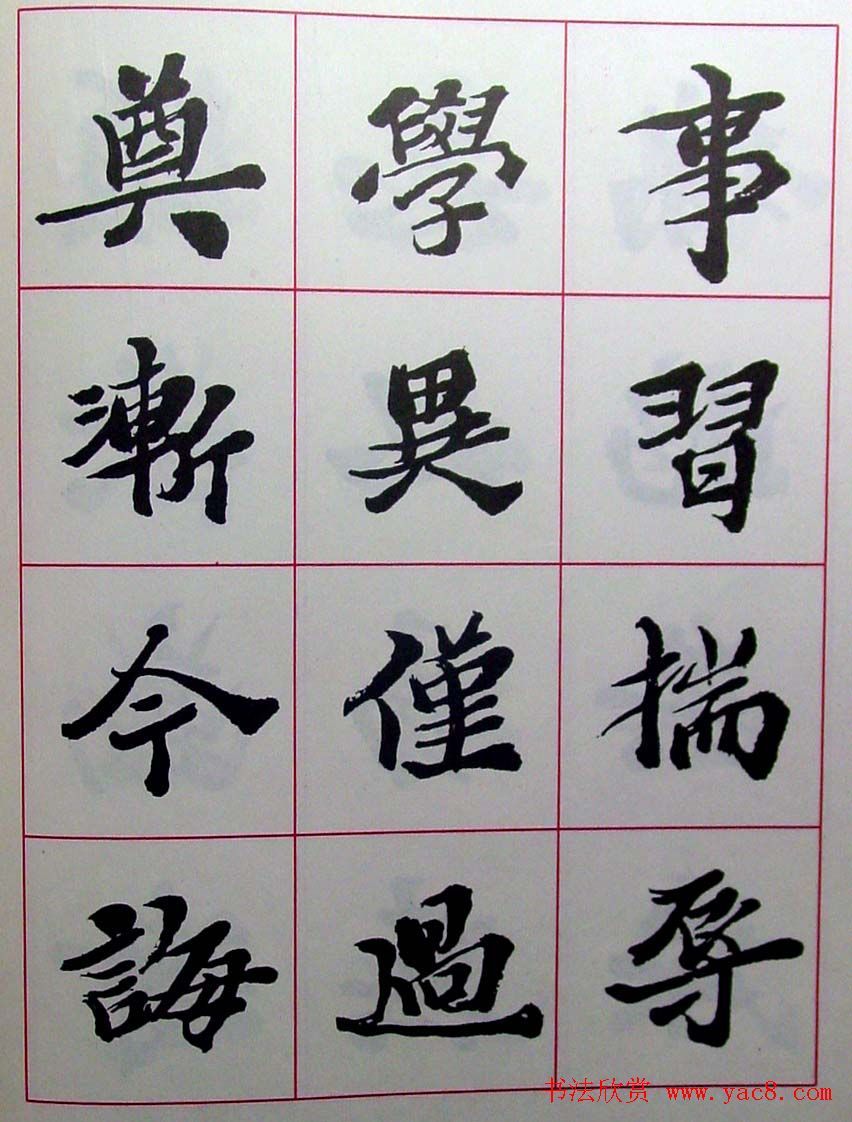 事習揣辱
學異僅過
奠漸今誨
书法欣赏 www.yac8.com